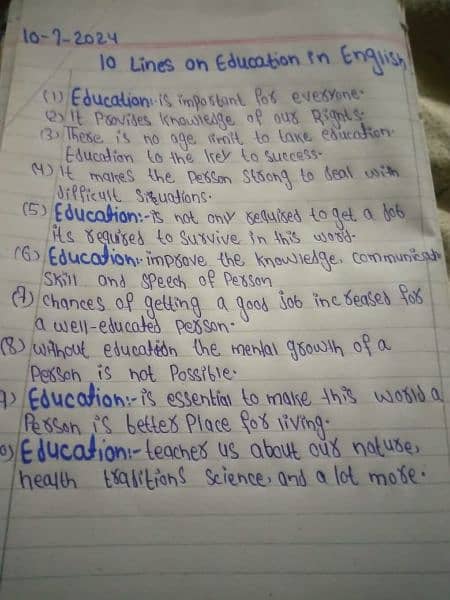 10-7-2024
10 Lines on Education in English
(1) Education:- is important for everyone.
(2) It Provides knowledge of our Rights.
(3) There is no age limit to take education.
Education to the key to success.
(4) It makes the Person strong to deal with
difficult Situations.
(5) Education:- is not only required to get a Job
its required to survive in this world.
(6) Education:- improve the knowledge, communication
skill and speech of Person
(7) chances of getting a good job increased for
a well-educated Person.
(8) without education the mental growth of a
Person is not Possible.
9) Education:- is essential to make this world a
Person is better Place for living.
0) Education:- teacher us about our nature,
health traditions science, and a lot more.